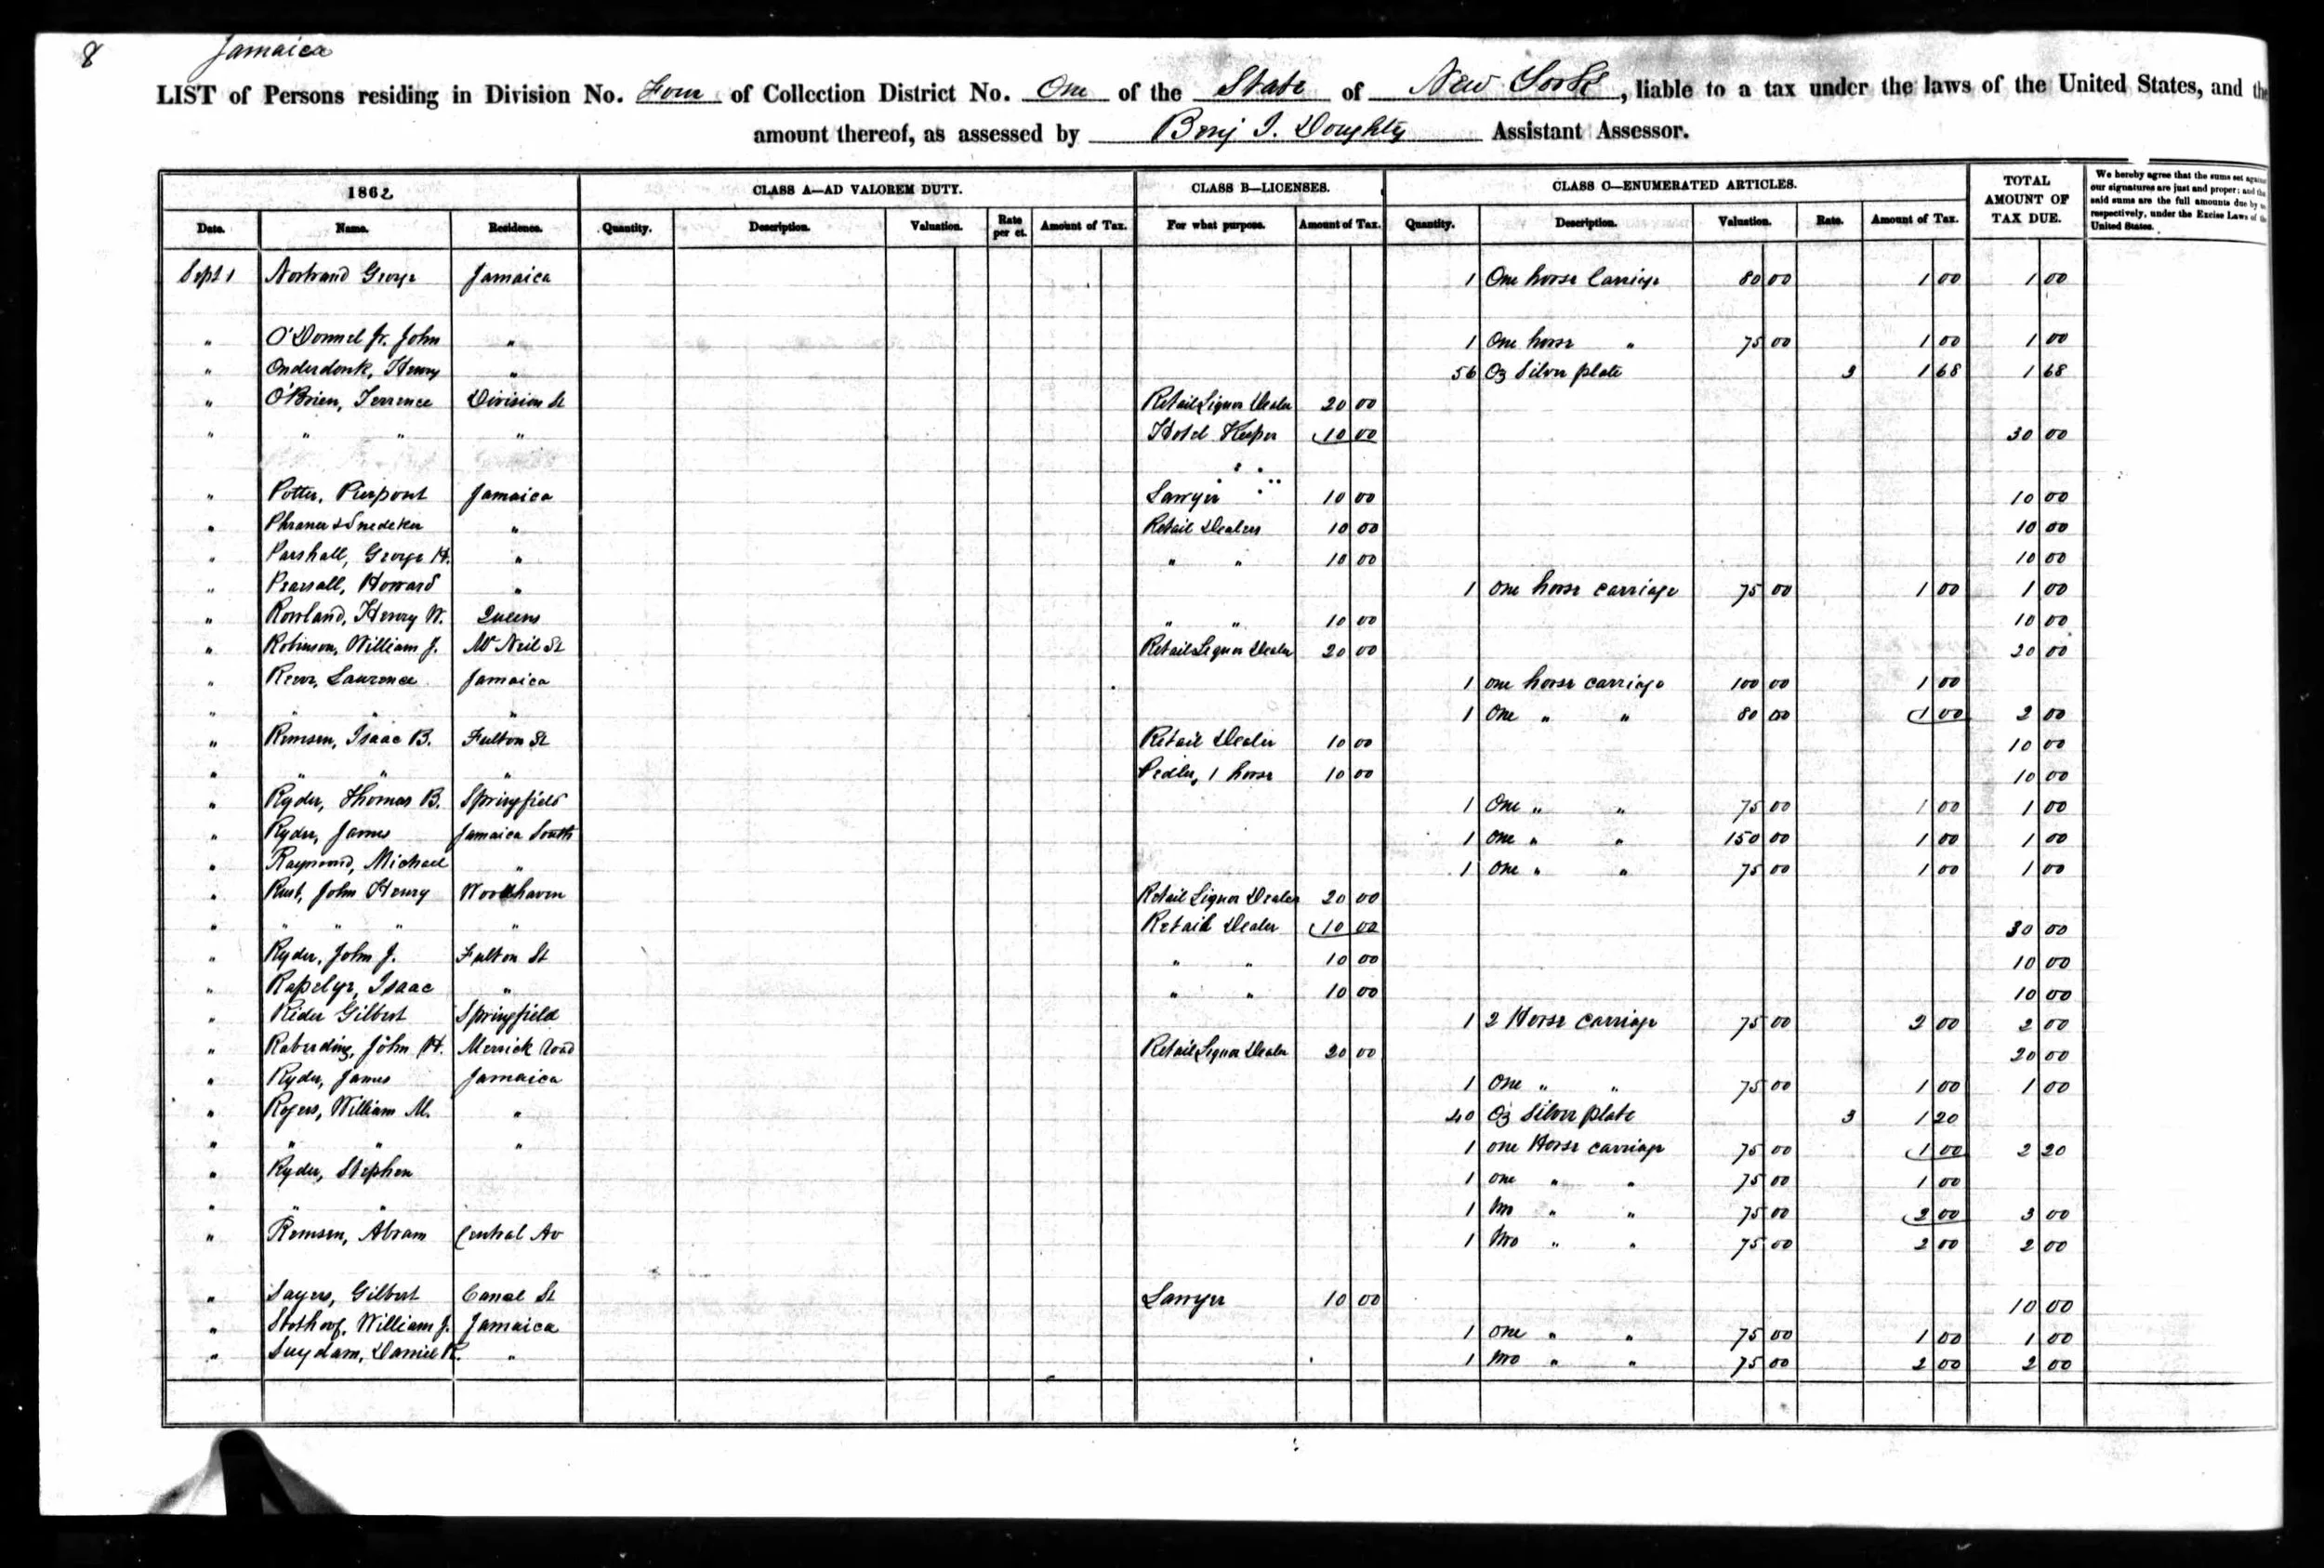 8 Jamaica
LIST of Persons residing in Division No. Four of Collection District No. One of the State of New York, liable to a tax under the laws of the United States, and the
amount thereof, as assessed by Benj I. Doughty Assistant Assessor.
1862 CLASS A—AD VALOREM DUTY. CLASS B—LICENSES. CLASS C—ENUMERATED ARTICLES. TOTAL AMOUNT OF TAX DUE.
We hereby agree that the sums set against
our signatures are just and proper; and the
said sums are the full amounts due by us
respectively, under the Excise Laws of the
United States.
Date. Name. Residence. Quantity. Description. Valuation. Rate per ct. Amount of Tax. For what purpose. Amount of Tax. Quantity. Description. Valuation. Rate. Amount of Tax.
Sept 1 Nostrand George Jamaica 1 One horse Carriage 80 00 1 00 1 00
" O'Donnel Jr. John " 1 One horse " 75 00 1 00 1 00
" Onderdonk, Henry " 56 Oz Silver plate 3 1 68 1 68
" O'Brien, Terrence Division St Retail Liquor Dealer 20 00
" " " " Hotel Keeper 10 00 30 00
" Potter, Pierpont Jamaica Lawyer 10 00 10 00
" Phraner & Snedeker " Retail Dealers 10 00 10 00
" Parshall, George H. " " " 10 00 10 00
" Pearsall, Howard " 1 one horse carriage 75 00 1 00 1 00
" Rowland, Henry W. Queens " " 10 00 10 00
" Robinson, William J. Mc Neil St Retail Liquor Dealer 20 00 20 00
" Reeve, Laurence Jamaica 1 one horse carriage 100 00 1 00
" " " " 1 One " " 80 00 1 00 2 00
" Remsen, Isaac B. Fulton St Retail Dealer 10 00 10 00
" " " " Pedler, 1 horse 10 00 10 00
" Ryder, Thomas B. Springfield 1 One " " 75 00 1 00 1 00
" Ryder, James Jamaica South 1 one " " 150 00 1 00 1 00
" Raymond, Michael " 1 one " " 75 00 1 00 1 00
" Rust, John Henry Woodhaven Retail Liquor Dealer 20 00
" " " " " Retail Dealer 10 00 30 00
" Ryder, John J. Fulton St " " 10 00 10 00
" Rapelye, Isaac " " " 10 00 10 00
" Rider Gilbert Springfield 1 2 Horse carriage 75 00 2 00 2 00
" Raberding, John H. Merrick road Retail Liquor Dealer 20 00 20 00
" Ryder, James Jamaica 1 One " " 75 00 1 00 1 00
" Rogers, William M. " 40 Oz Silver plate 3 1 20
" " " " 1 one Horse carriage 75 00 1 00 2 20
" Ryder, Stephen 1 one " " 75 00 1 00
" " " 1 two " " 75 00 2 00 3 00
" Remsen, Abram Central Av 1 two " " 75 00 2 00 2 00
" Sayers, Gilbert Canal St Lawyer 10 00 10 00
" Stothoof, William J. Jamaica 1 one " " 75 00 1 00 1 00
" Suydam, Daniel R. " 1 two " " 75 00 2 00 2 00